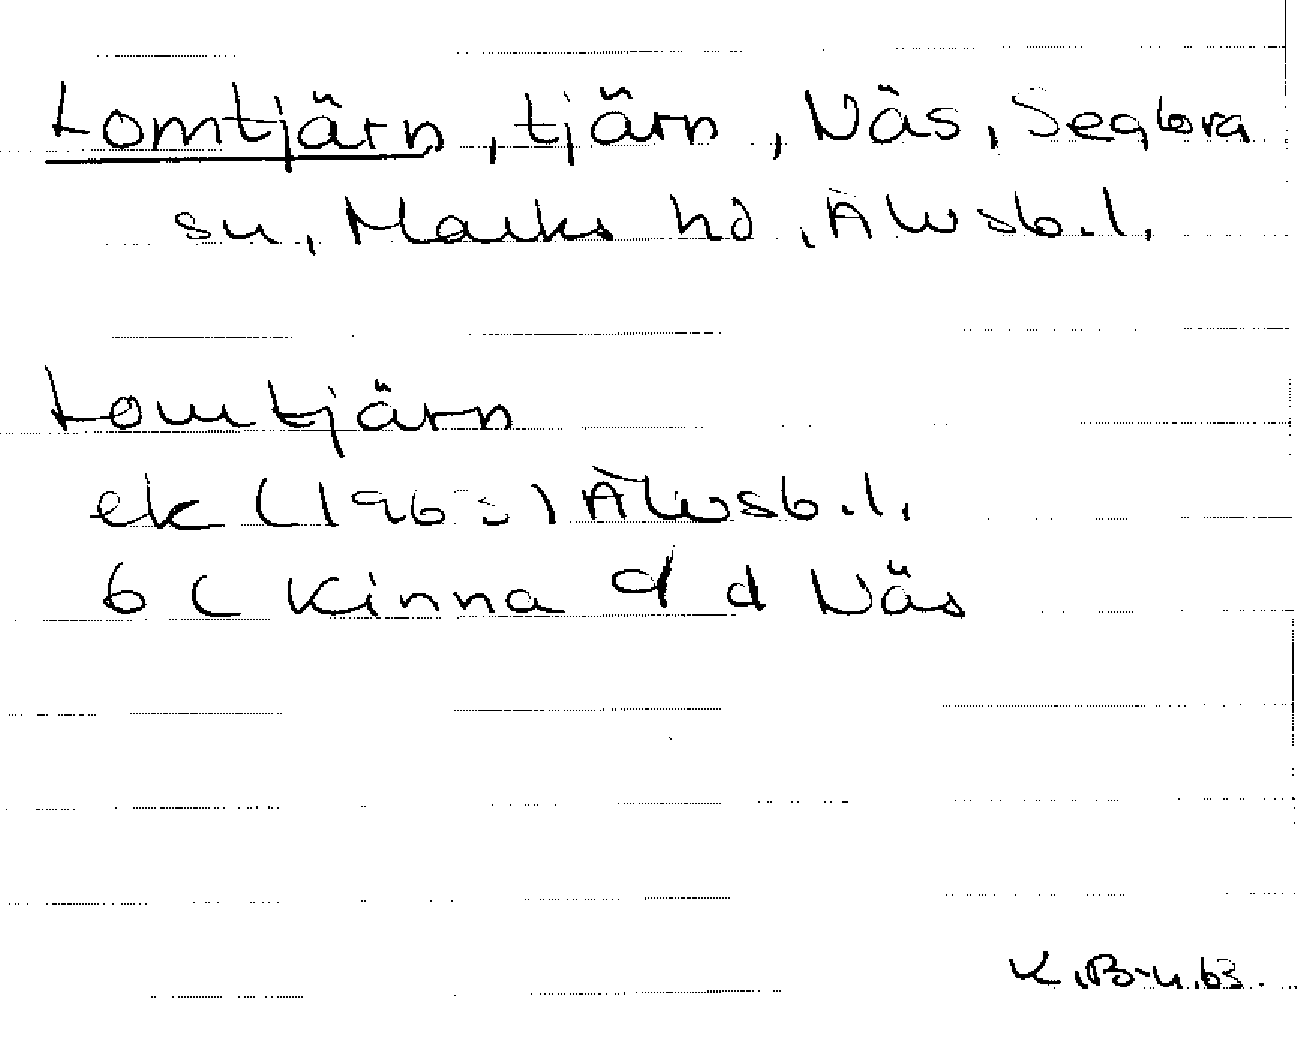 Lomtjärn, tjärn, Näs, Seglora
sn, Marks hd, Älvsb.l.
Lomtjärn
ek (1963) Älvsb.l.
6 C Kinna 9 d Näs
K.B-n.63.